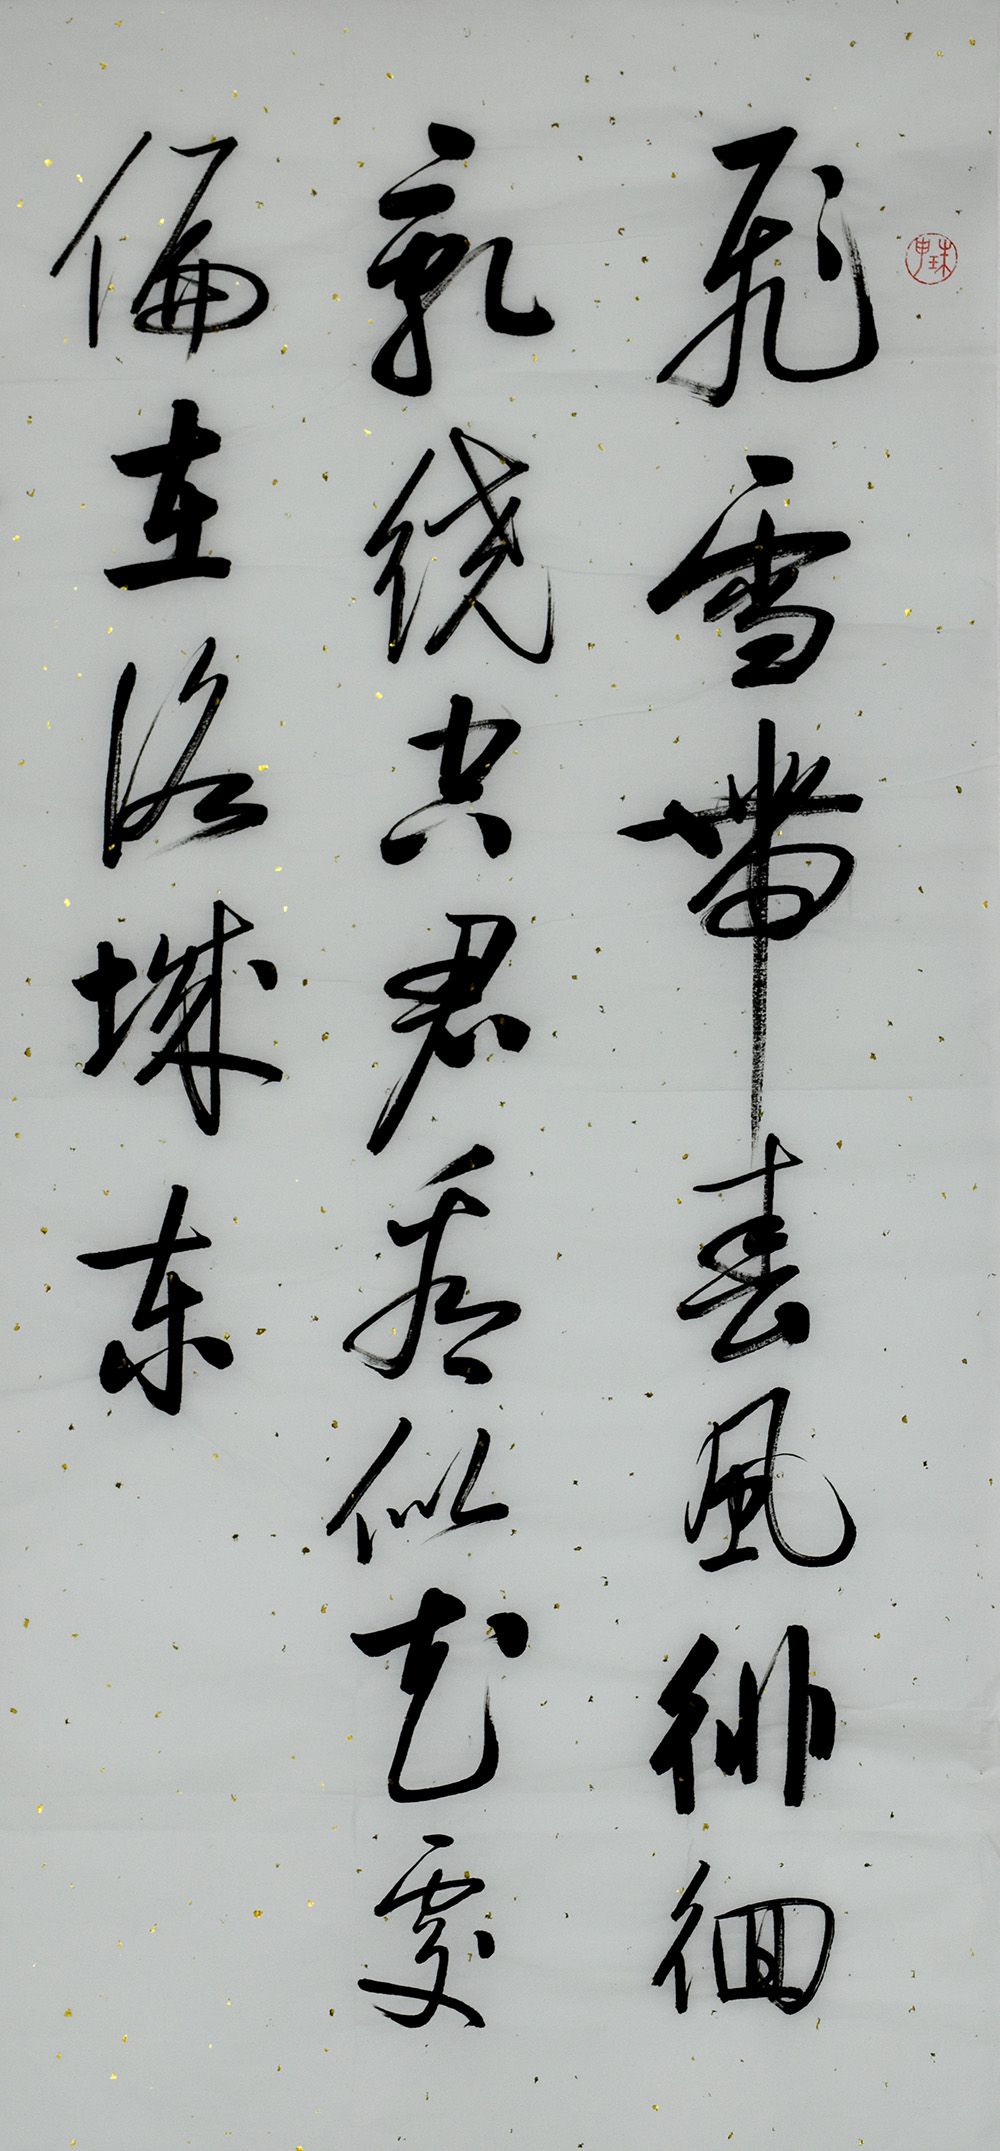 飛雪帶春風徘徊
亂绕空君看似花處
偏在洛城东